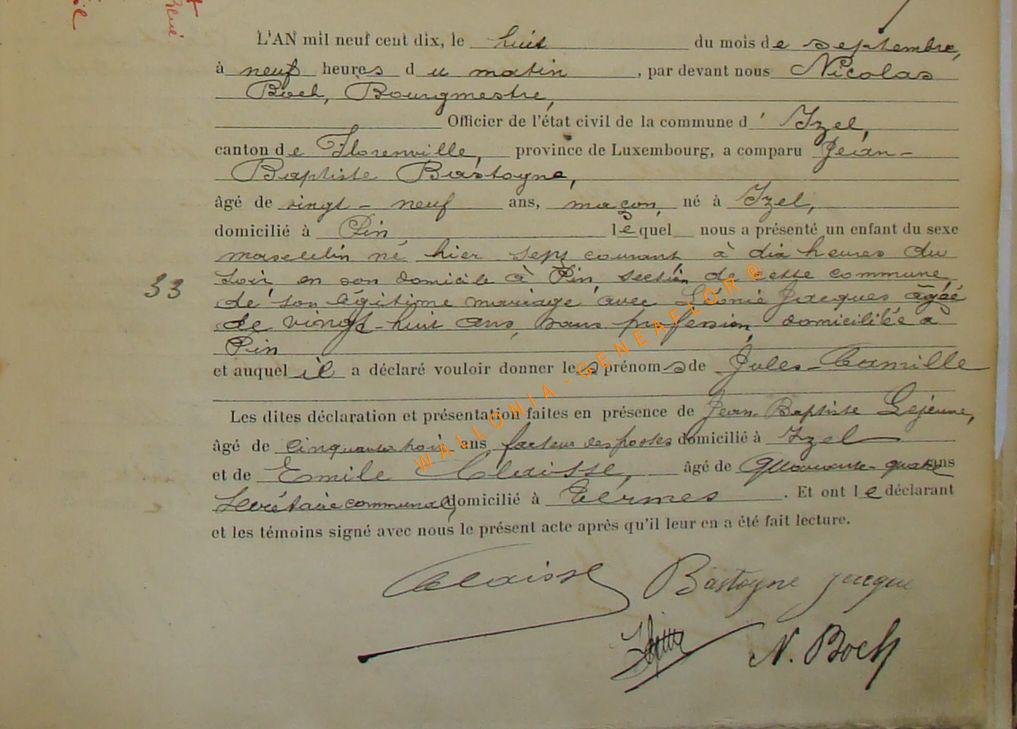 L'AN mil neuf cent dix, le huit du mois de septembre,
à neuf heures du matin, par devant nous Nicolas
Boch, Bourgmestre,
Officier de l'état civil de la commune d' Izel,
canton de Florenville, province de Luxembourg, a comparu Jean-
Baptiste Bastogne,
âgé de vingt-neuf ans, maçon, né à Izel,
domicilié à Pin lequel nous a présenté un enfant du sexe
masculin né hier sept courant à dix heures du
soir, en son domicile à Pin, section de cette commune,
53
de son légitime mariage avec Léonie Jacques âgée
de vingt-huit ans, sans profession, domiciliée à
Pin
et auquel il a déclaré vouloir donner les prénoms de Jules-Camille
Les dites déclaration et présentation faites en présence de Jean Baptiste Lejeune,
âgé de cinquante trois ans facteur des postes domicilié à Izel
et de Emile Claisse, âgé de quarante-quatre ans
secrétaire communal, domicilié à Termes. Et ont le déclarant
et les témoins signé avec nous le présent acte après qu'il leur en a été fait lecture.
Claisse Bastogne Jacque
N. Boch
WALLONIA-GENEAFLOR ©